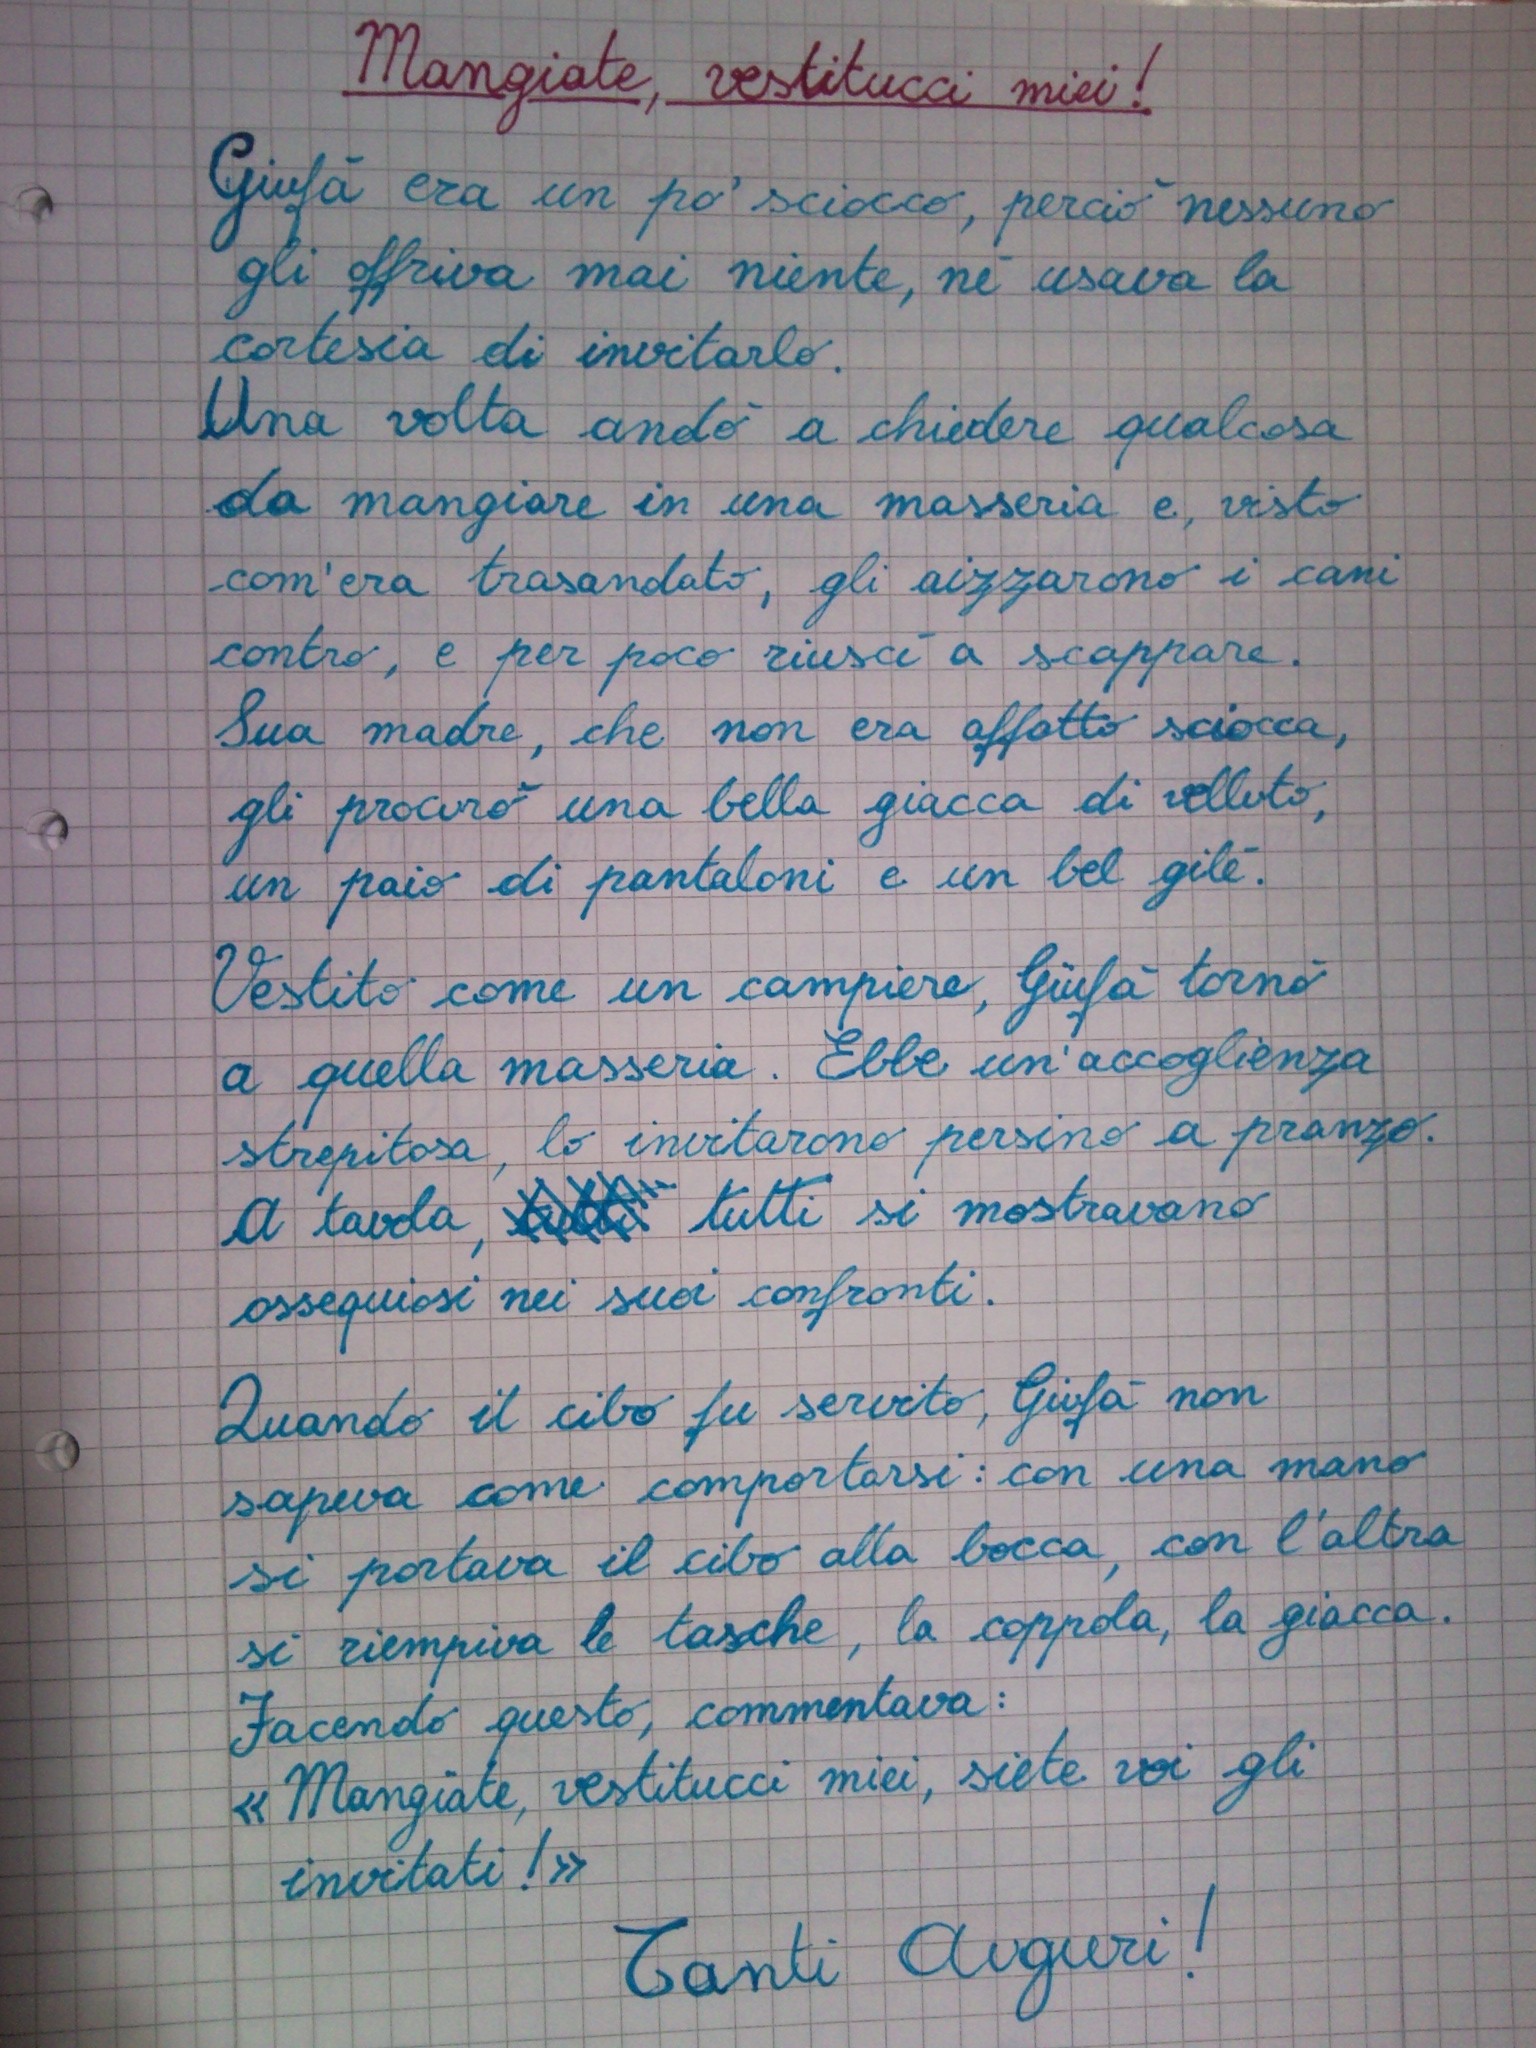 Mangiate, vestitucci miei!
Giufà era un po' sciocco, perciò nessuno
gli offriva mai niente, né usava la
cortesia di invitarlo.
Una volta andò a chiedere qualcosa
da mangiare in una masseria e, visto
com'era trasandato, gli aizzarono i cani
contro, e per poco riuscì a scappare.
Sua madre, che non era affatto sciocca,
gli procurò una bella giacca di velluto,
un paio di pantaloni e un bel gilè.
Vestito come un campiere, Giufà tornò
a quella masseria. Ebbe un'accoglienza
strepitosa, lo invitarono persino a pranzo.
A tavola, tutti si mostravano
ossequiosi nei suoi confronti.
Quando il cibo fu servito, Giufà non
sapeva come comportarsi: con una mano
si portava il cibo alla bocca, con l'altra
si riempiva le tasche, la coppola, la giacca.
Facendo questo, commentava:
«Mangiate, vestitucci miei, siete voi gli
invitati!»
Tanti Auguri!